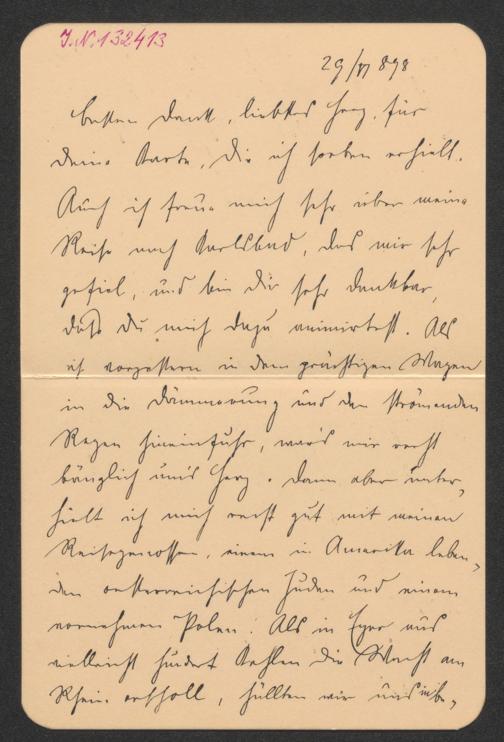 J.N. 132413
29/VI 898
besten Dank, liebstes Herz, für
Deine Karte, die ich soeben erhielt.
Auch ich freue mich sehr über meine
Reise nach Karlsbad, das mir sehr
gefiel, und bin Dir sehr dankbar,
daß Du mich dazu animirtest. Als
ich vorgestern in dem prächtigen Wagen
in die Dämmerung und den strömenden
Regen hineinfuhr, war's mir recht
bänglich um's Herz. Dann aber unter-
hielt ich mich recht gut mit meinen
Reisegenossen, einem in Amerika leben-
den oesterreichischen Juden und einem
vornehmen Polen. Als in Eger aus
vielleicht hundert Kehlen die Wacht am
Rhein erscholl, hüllten wir uns